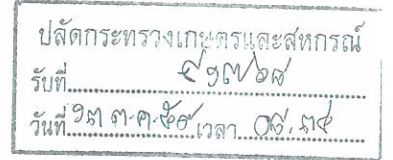 ปลัดกระทรวงเกษตรและสหกรณ์
รับที่
วันที่ ๑๓ ต.ค. ๕๙ เวลา